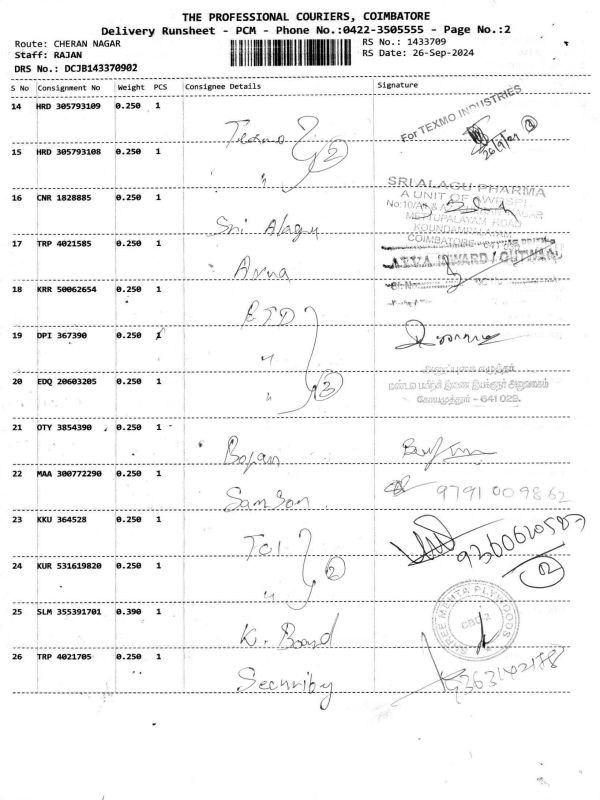 THE PROFESSIONAL COURIERS, COIMBATORE
Delivery Runsheet - PCM - Phone No.:0422-3505555 - Page No.:2
Route: CHERAN NAGAR
RS No.: 1433709
Staff: RAJAN
RS Date: 26-Sep-2024
DRS No.: DCJB143370902
S No Consignment No Weight PCS Consignee Details Signature
14 HRD 305793109 0.250 1 Texmo
For TEXMO INDUSTRIES
2
26/9/24
15 HRD 305793108 0.250 1 "
SRI ALAGU PHARMA
A UNIT OF
METTUPALAYAM ROAD
KOUNDAMPALAYAM
COIMBATORE
16 CNR 1828885 0.250 1 Sri Alagu
17 TRP 4021585 0.250 1
INWARD / OUTWARD
18 KRR 50062654 0.250 1
19 DPI 367390 0.250 1 "
20 EDQ 20603205 0.250 1 "
3
மண்டல பயிற்சி இணை இயக்குநர் அலுவலகம்
கோயமுத்தூர் - 641 029.
21 OTY 3854390 0.250 1 Bojan
22 MAA 300772290 0.250 1 Samson
9791 009862
23 KKU 364528 0.250 1
24 KUR 531619820 0.250 1 "
2
02
25 SLM 355391701 0.390 1 K. Board
SHREE MEHTA PLYWOODS
CBE-2
26 TRP 4021705 0.250 1 Security